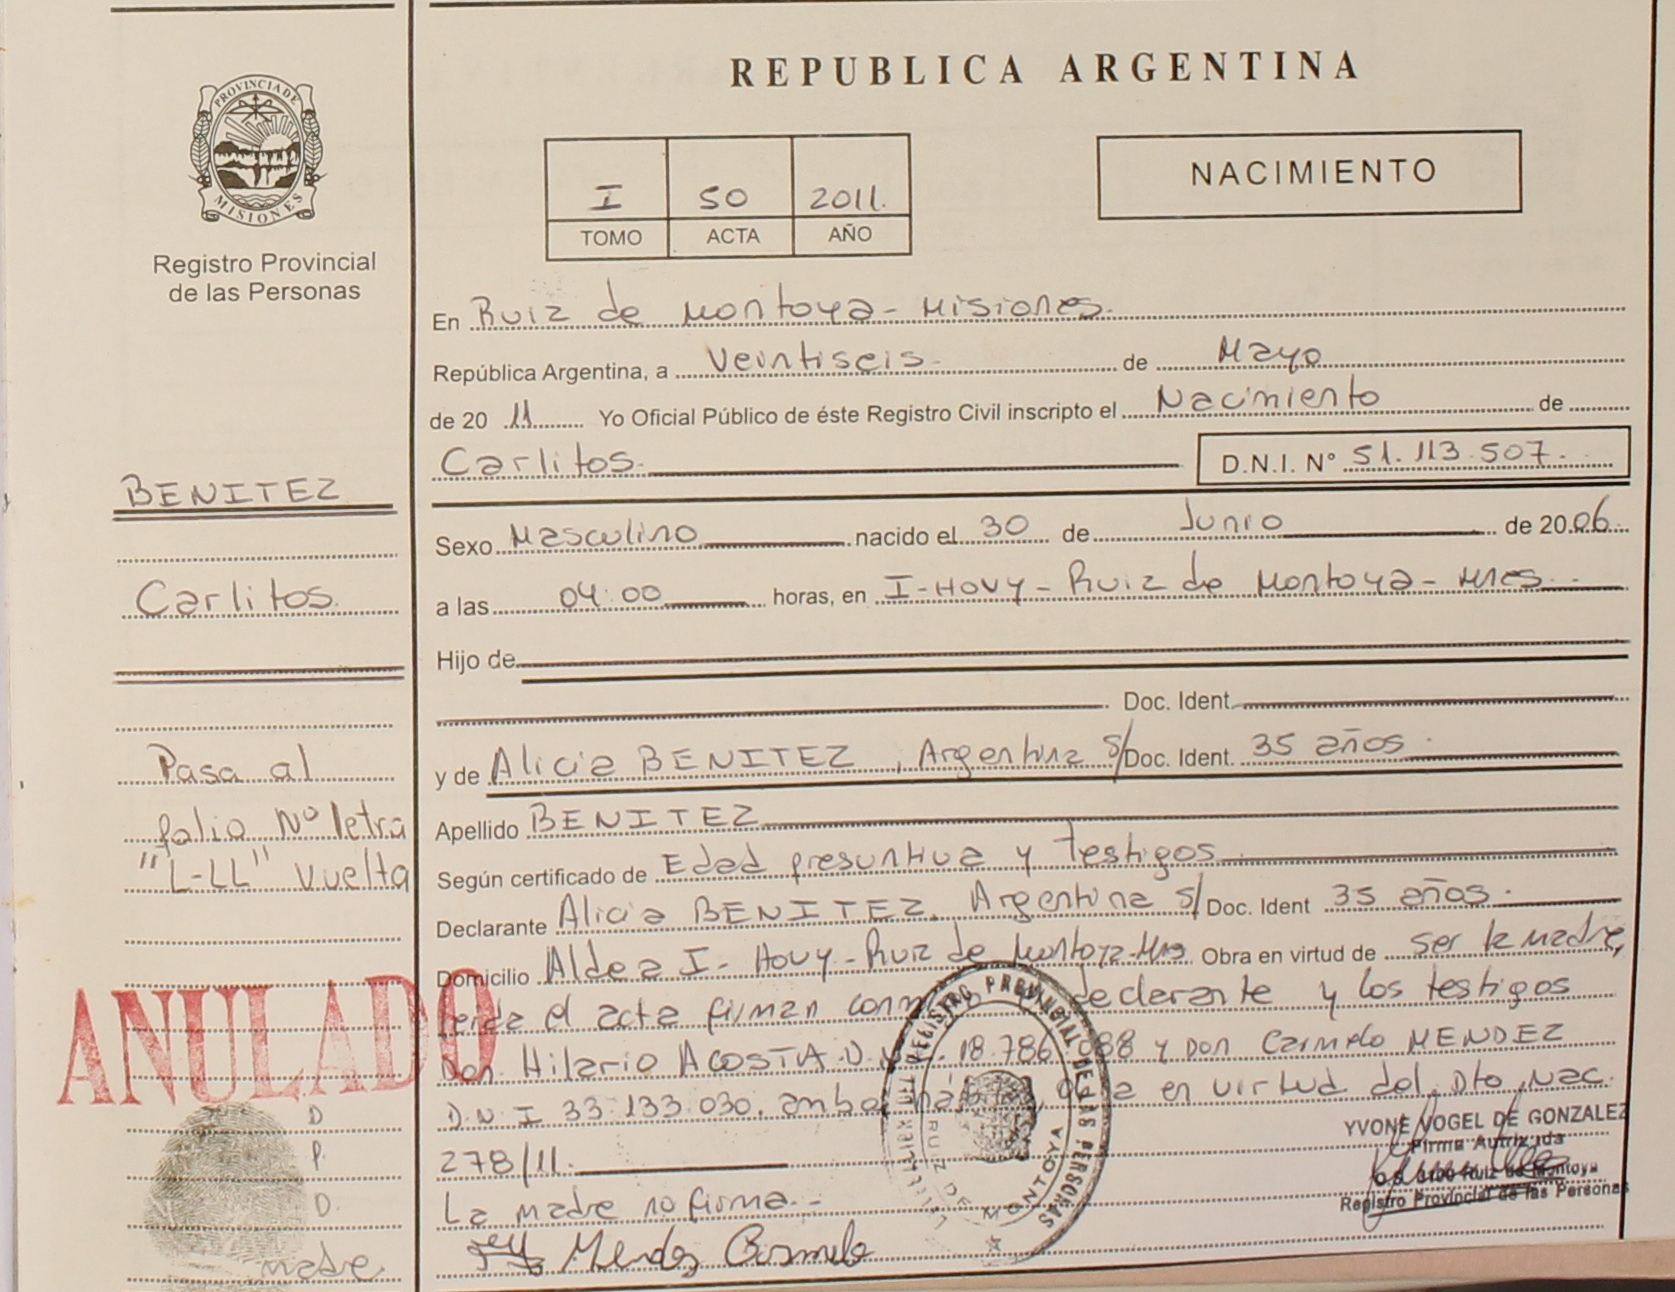 REPUBLICA ARGENTINA
PROVINCIA DE
MISIONES
Registro Provincial
de las Personas
I 50 2011.
TOMO ACTA AÑO
NACIMIENTO
En Ruiz de Montoya - Misiones.
República Argentina, a Veintiseis de Mayo
de 2011 Yo Oficial Público de éste Registro Civil inscripto el Nacimiento de
Carlitos. D.N.I. N° 51.113.507.
BENITEZ
Carlitos.
Sexo Masculino nacido el 30 de Junio de 2006
a las 04:00 horas, en I-HOVY - Ruiz de Montoya - Mnes
Hijo de
Doc. Ident.
y de Alicia BENITEZ, Argentina S/Doc. Ident. 35 años.
Apellido BENITEZ
Según certificado de Edad presuntiva y Testigos
Declarante Alicia BENITEZ, Argentina S/ Doc. Ident 35 años.
Domicilio Aldea I-Hovy - Ruiz de Montoya - Mns Obra en virtud de ser la madre,
leída el acta firman declarante y los testigos
Don Hilario ACOSTA 18.786 088 y Don Carmelo MENDEZ
D.N.I 33.133.030. en virtud del Dto Nac.
278/11.
La madre no firma.-
Mendez Carmelo
Pasa al
folio Nº letra
"L-LL" vuelta
ANULADO
D
P.
D.
madre
REGISTRO PROVINCIAL DE LAS PERSONAS
RUIZ DE MONTOYA
YVONE VOGEL DE GONZALEZ
Firma Autorizada
Ruiz de Montoya
Registro Provincial de las Personas